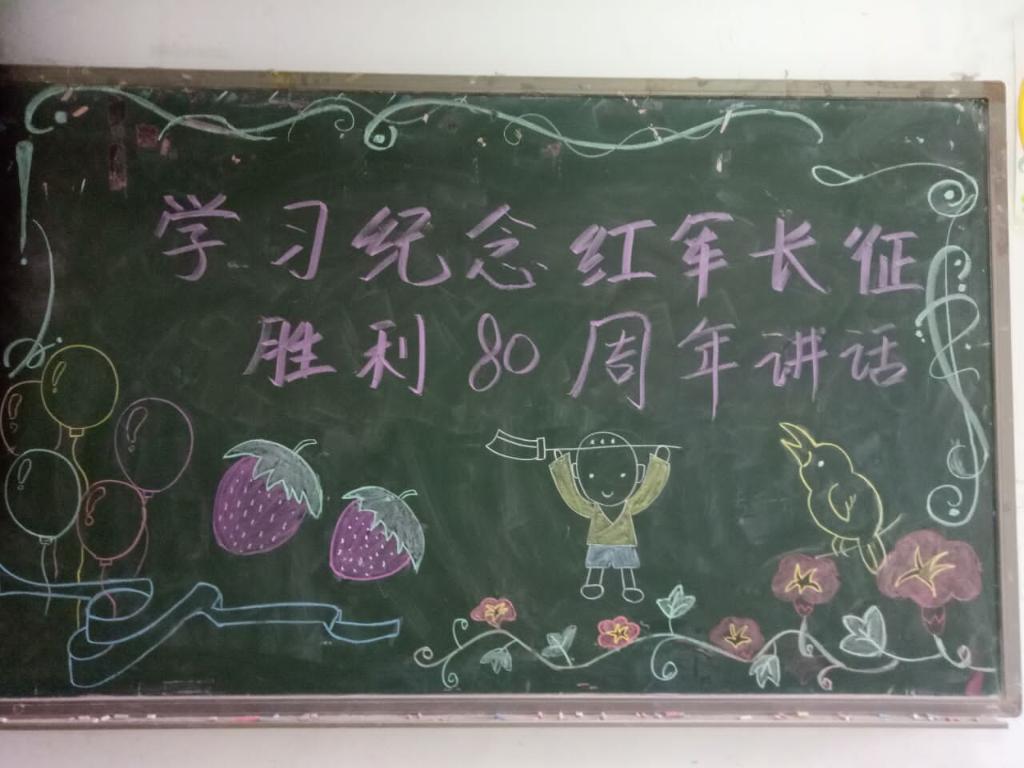 学习纪念红军长征
胜利80周年讲话